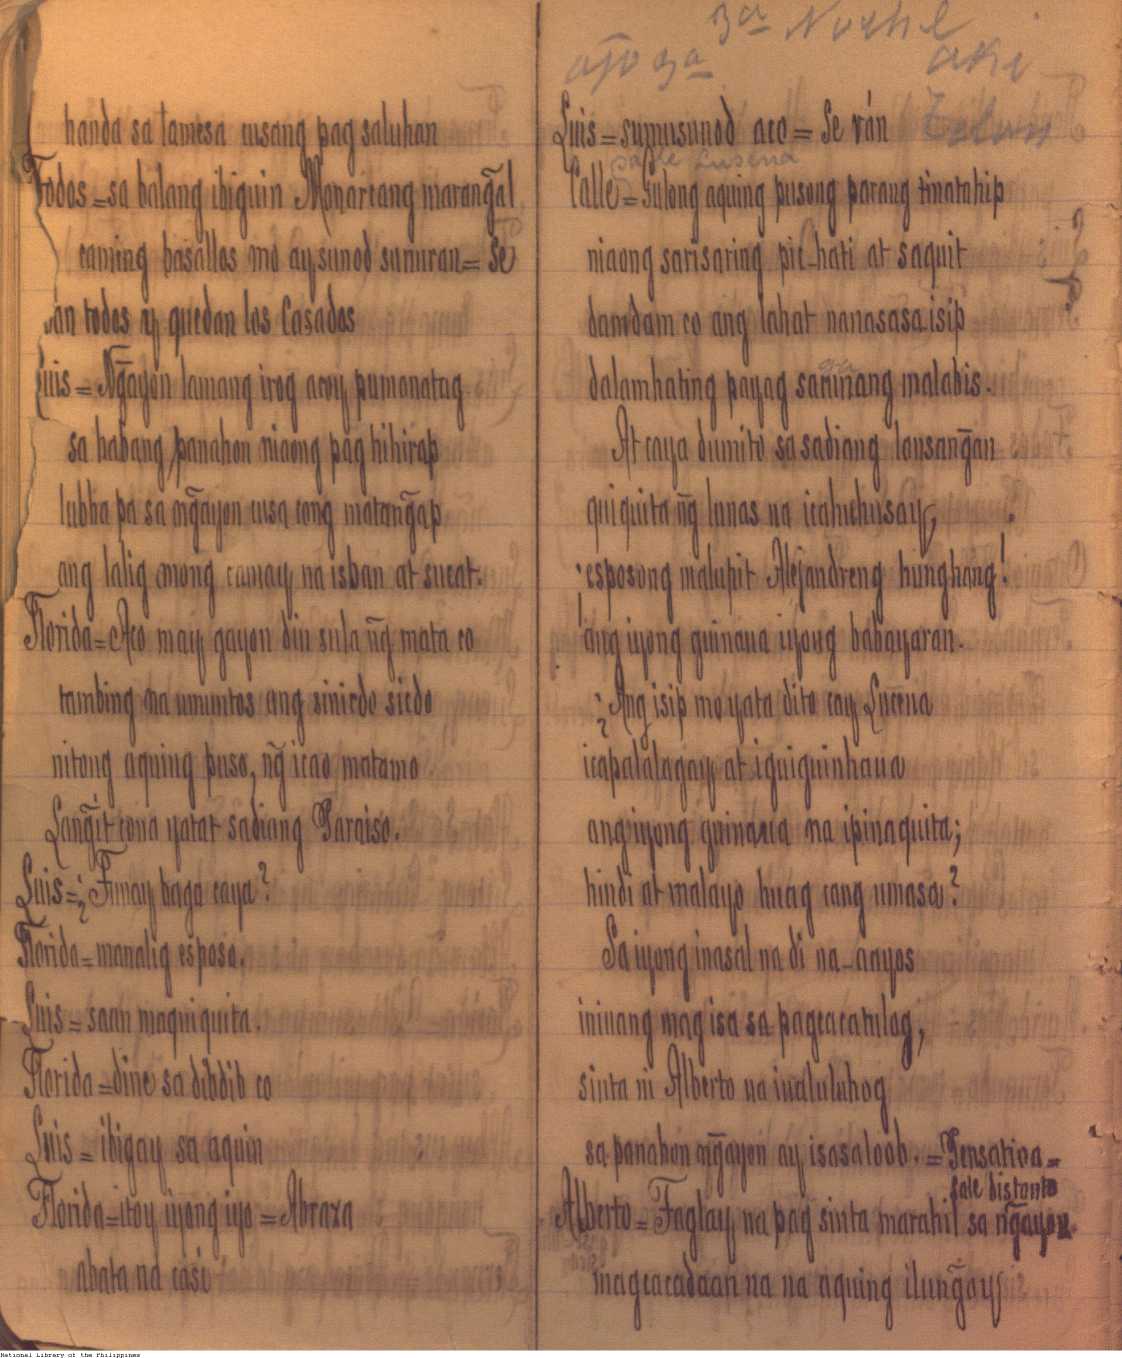 handa sa lamesa cusang pag saluhan
Todos = sa balang ibiguin Monarcang maran͠gal
caming basallos mo ay sunod sumuran = Se
van todos y quedan los Casados
Luis = N͠gayon lamang irog acoy pumanatag
sa habang panahon niaong pag hihirap
lubha pa sa n͠gayon cusa cong matan͠gap
ang lalig mong camay na isban at sucat.
Florida = Aco may gayon din sula n͠g mata co
tambing na umuntos ang sinicdo sicdo
nitong aquing puso, n͠g icao matamo
Lan͠git cona yatat sadiang Paraiso.
Luis = ¿Tunay baga caya?
Florida = manalig esposo.
Luis = saan maquiquita.
Florida = dine sa dibdib co
Luis = ibigay sa aquin
Florida = itoy iyong iyo = Abraza
abata na casi
3a Noche
ajo 3a aki
Luis = sumusunod aco = Se ván Telon
sale Lusena
Calle = Gulong aquing pusong parang tinatahip
niaong sarisaring pic-hati at saquit
damdam co ang lahat nanasasa isip
dalamhating payag sarining malabis.
At caya dumito sa sadiang lansan͠gan
quiquita n͠g lunas na icahuhusay,
¡esposong malupit Alejandreng hunghang!
¡ang iyong guinaua iyong babayaran.
¿Ang isip mo yata dito cay Lucena
icapalalagay at iguiguinhaua
ang iyong guinaua na ipinaquita;
hindi at malayo huag cang umasa?
Sa iyong inasal na di na-aayos
iniuang mag isa sa pagcacatulog,
sinta ni Alberto na inaluluhog
sa panahon n͠gayon ay isasaloob. = Pensativa =
sale distonto
Alberto = Taglay na pag sinta marahil sa n͠gayon
magcacadaan na na aquing ilun͠goy
National Library of the Philippines